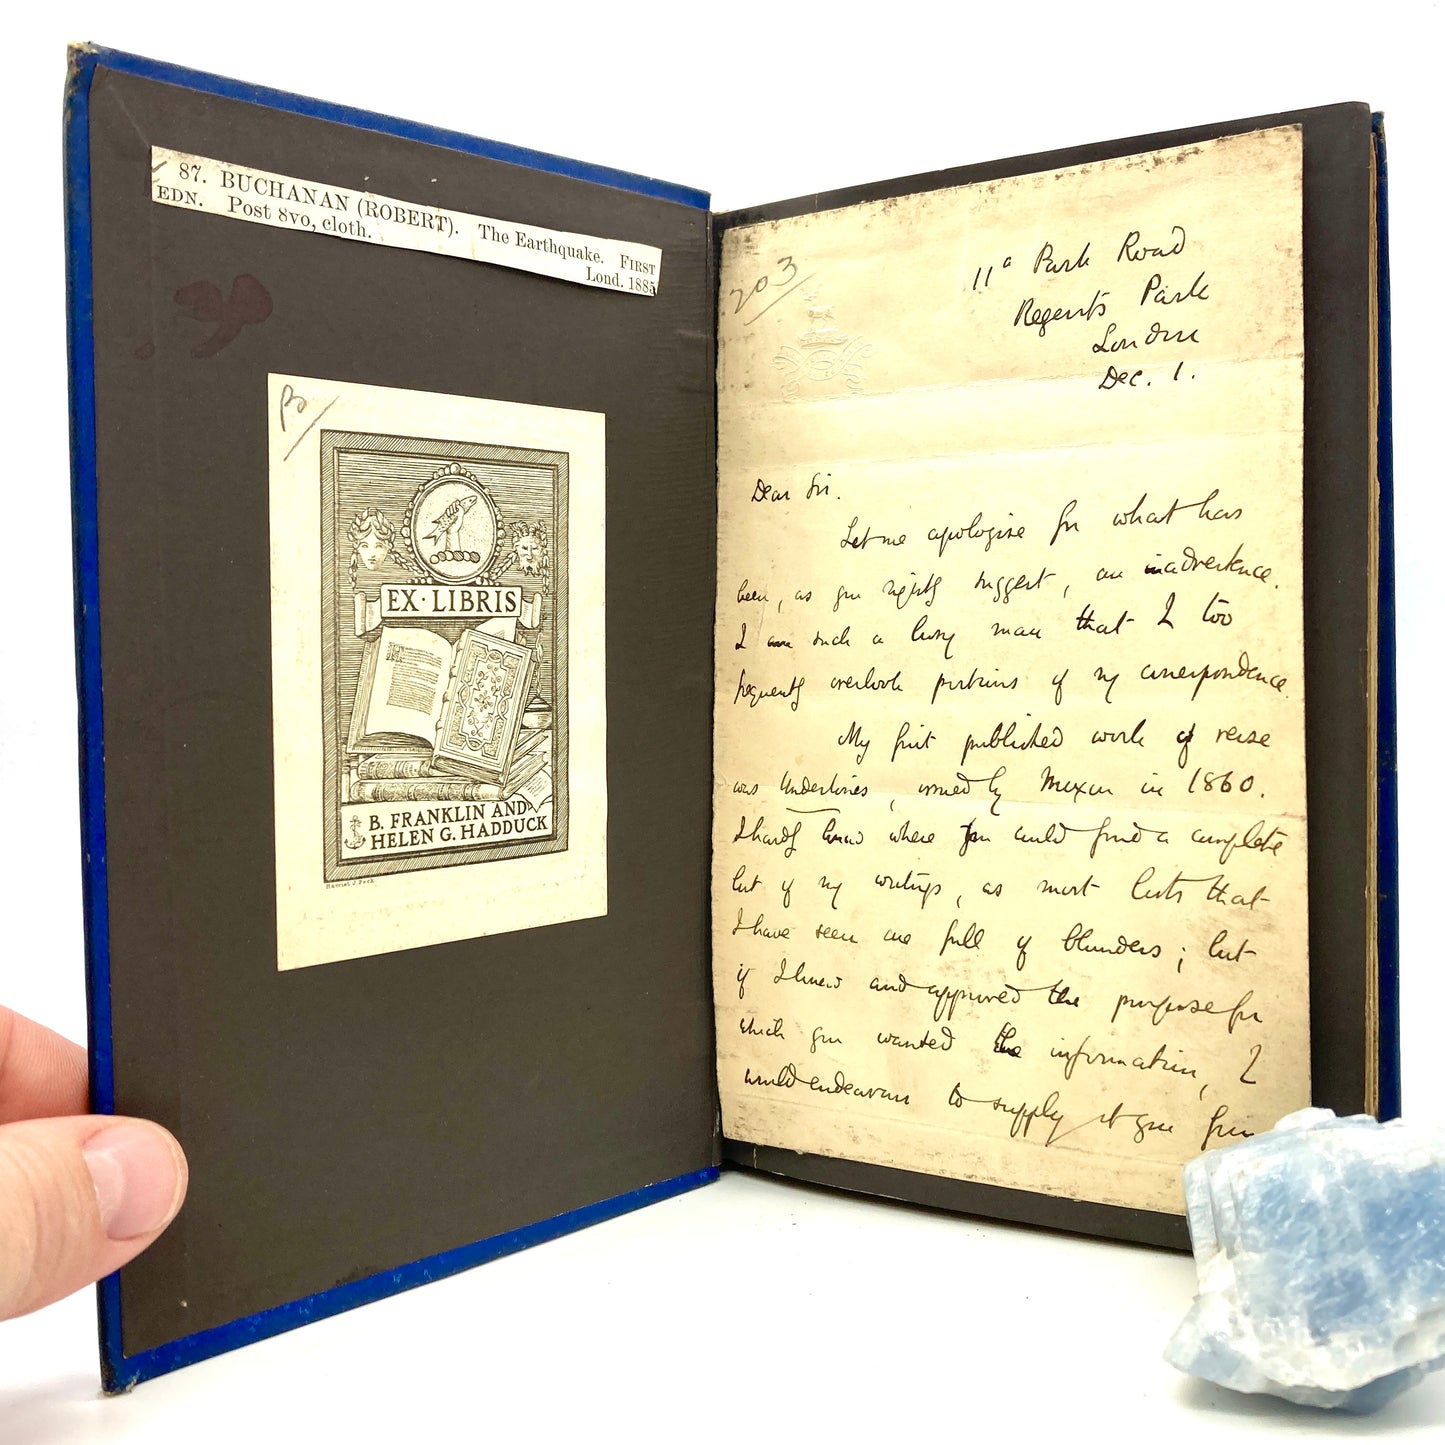 87. BUCHANAN (ROBERT). The Earthquake. FIRST
EDN. Post 8vo, cloth. Lond. 1885
EX·LIBRIS
B. FRANKLIN AND
HELEN G. HADDUCK
Harriet J. Peck
203
11a Park Road
Regents Park
London
Dec. 1.
Dear Sir.
Let me apologise for what has
been, as you rightly suggest, an inadvertence.
I am such a busy man that I too
frequently overlook portions of my correspondence.
My first published work of verse
was Undertones, issued by Moxon in 1860.
I hardly know where you could find a complete
list of my writings, as most lists that
I have seen are full of blunders; but
if I knew and approved the purpose for
which you wanted the information, I
would endeavour to supply it you from